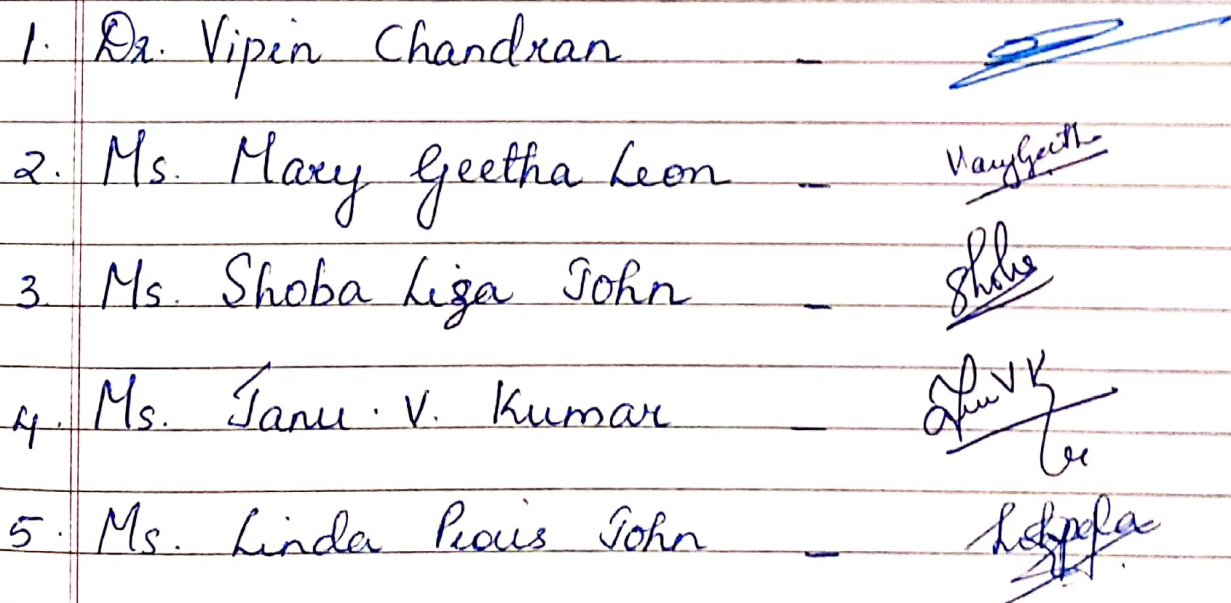 1. Dr. Vipin Chandran -
2. Ms. Mary Geetha Leon - Mary Geeth
3. Ms. Shoba Liza John - Shoba
4. Ms. Janu. V. Kumar -
5. Ms. Linda Pious John -